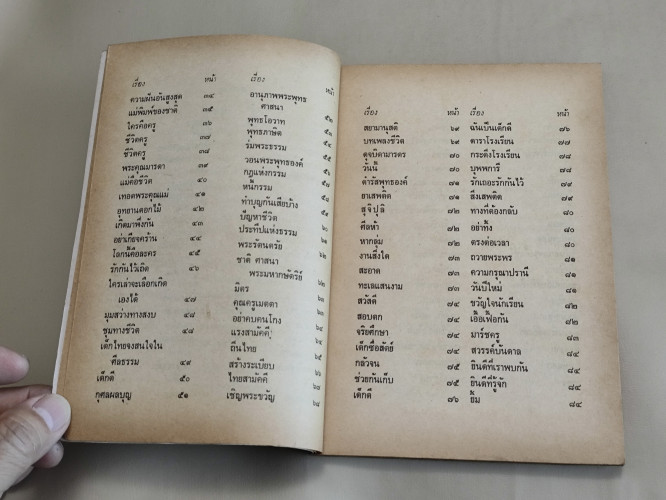 เรื่อง หน้า
ความฝันอันสูงสุด ๓๔
แม่พิมพ์ของชาติ ๓๕
ใครคือครู ๓๖
ชีวิตครู ๓๗
ชีวิตครู ๓๘
พระคุณมารดา ๓๙
แม่คือชีวิต ๔๐
เทอดพระคุณแม่ ๔๑
อุทยานดอกไม้ ๔๒
เกิดมาพึ่งกัน ๔๓
อย่าเกียจคร้าน ๔๔
โลกนี้คือละคร ๔๕
รักกันไว้เถิด ๔๖
ใครเล่าจะเลือกเกิด
เองได้ ๔๗
มุมสว่างทางสงบ ๔๘
ชุมทางชีวิต ๔๘
เด็กไทยจงสนใจใน
ศีลธรรม ๔๙
เด็กดี ๕๐
กุศลผลบุญ ๕๑
เรื่อง หน้า
อานุภาพพระพุทธ
ศาสนา
พุทธโอวาท
พุทธภาษิต
ร่มพระธรรม
วอนพระพุทธองค์
กฎแห่งกรรม
หนี้กรรม
ทำบุญกันเสียบ้าง
ปัญหาชีวิต
ประทีปแห่งธรรม
พระรัตนตรัย
ชาติ ศาสนา
พระมหากษัตริย์ ๖๒
มิตร
คุณครูเมตตา
อย่าคบคนโกง
แรงสามัคคี
ถิ่นไทย
สร้างระเบียบ
ไทยสามัคคี
เชิญพระขวัญ ๖๘
เรื่อง หน้า
สยามานุสติ ๖๙
บทเพลงชีวิต ๖๙
ดุจบิดามารดร ๗๐
วันนี้ ๗๐
ดำรัสพุทธองค์ ๗๑
ยาเสพติด ๗๑
สุ จิ ปุ ลิ ๗๒
ศีลห้า ๗๒
หากลุ่ม ๗๒
งานสิ่งใด ๗๓
สะอาด ๗๓
ทะเลแสนงาม ๗๓
สวัสดี ๗๔
สอบตก ๗๔
จริยศึกษา ๗๔
เด็กซื่อสัตย์ ๗๔
กลัวจน ๗๕
ช่วยกันเก็บ ๗๕
เด็กดี ๗๖
เรื่อง หน้า
ฉันเป็นเด็กดี ๗๖
ดาราโรงเรียน ๗๗
ระฆังโรงเรียน ๗๘
บุพพการี ๗๘
รักเถอะรักกันไว้ ๗๙
สิ่งเสพติด ๗๙
ทางที่ต้องกลับ ๘๐
อย่าทิ้ง ๘๐
ตรงต่อเวลา ๘๐
ถวายพระพร ๘๑
ความกรุณาปรานี ๘๑
วันปีใหม่ ๘๑
ขวัญใจนักเรียน ๘๒
เอื้อเฟื้อกัน ๘๒
มาร์ชครู ๘๓
สวรรค์บันดาล ๘๔
ยินดีที่เราพบกัน ๘๔
ยินดีที่รู้จัก ๘๔
ยิ้ม ๘๔